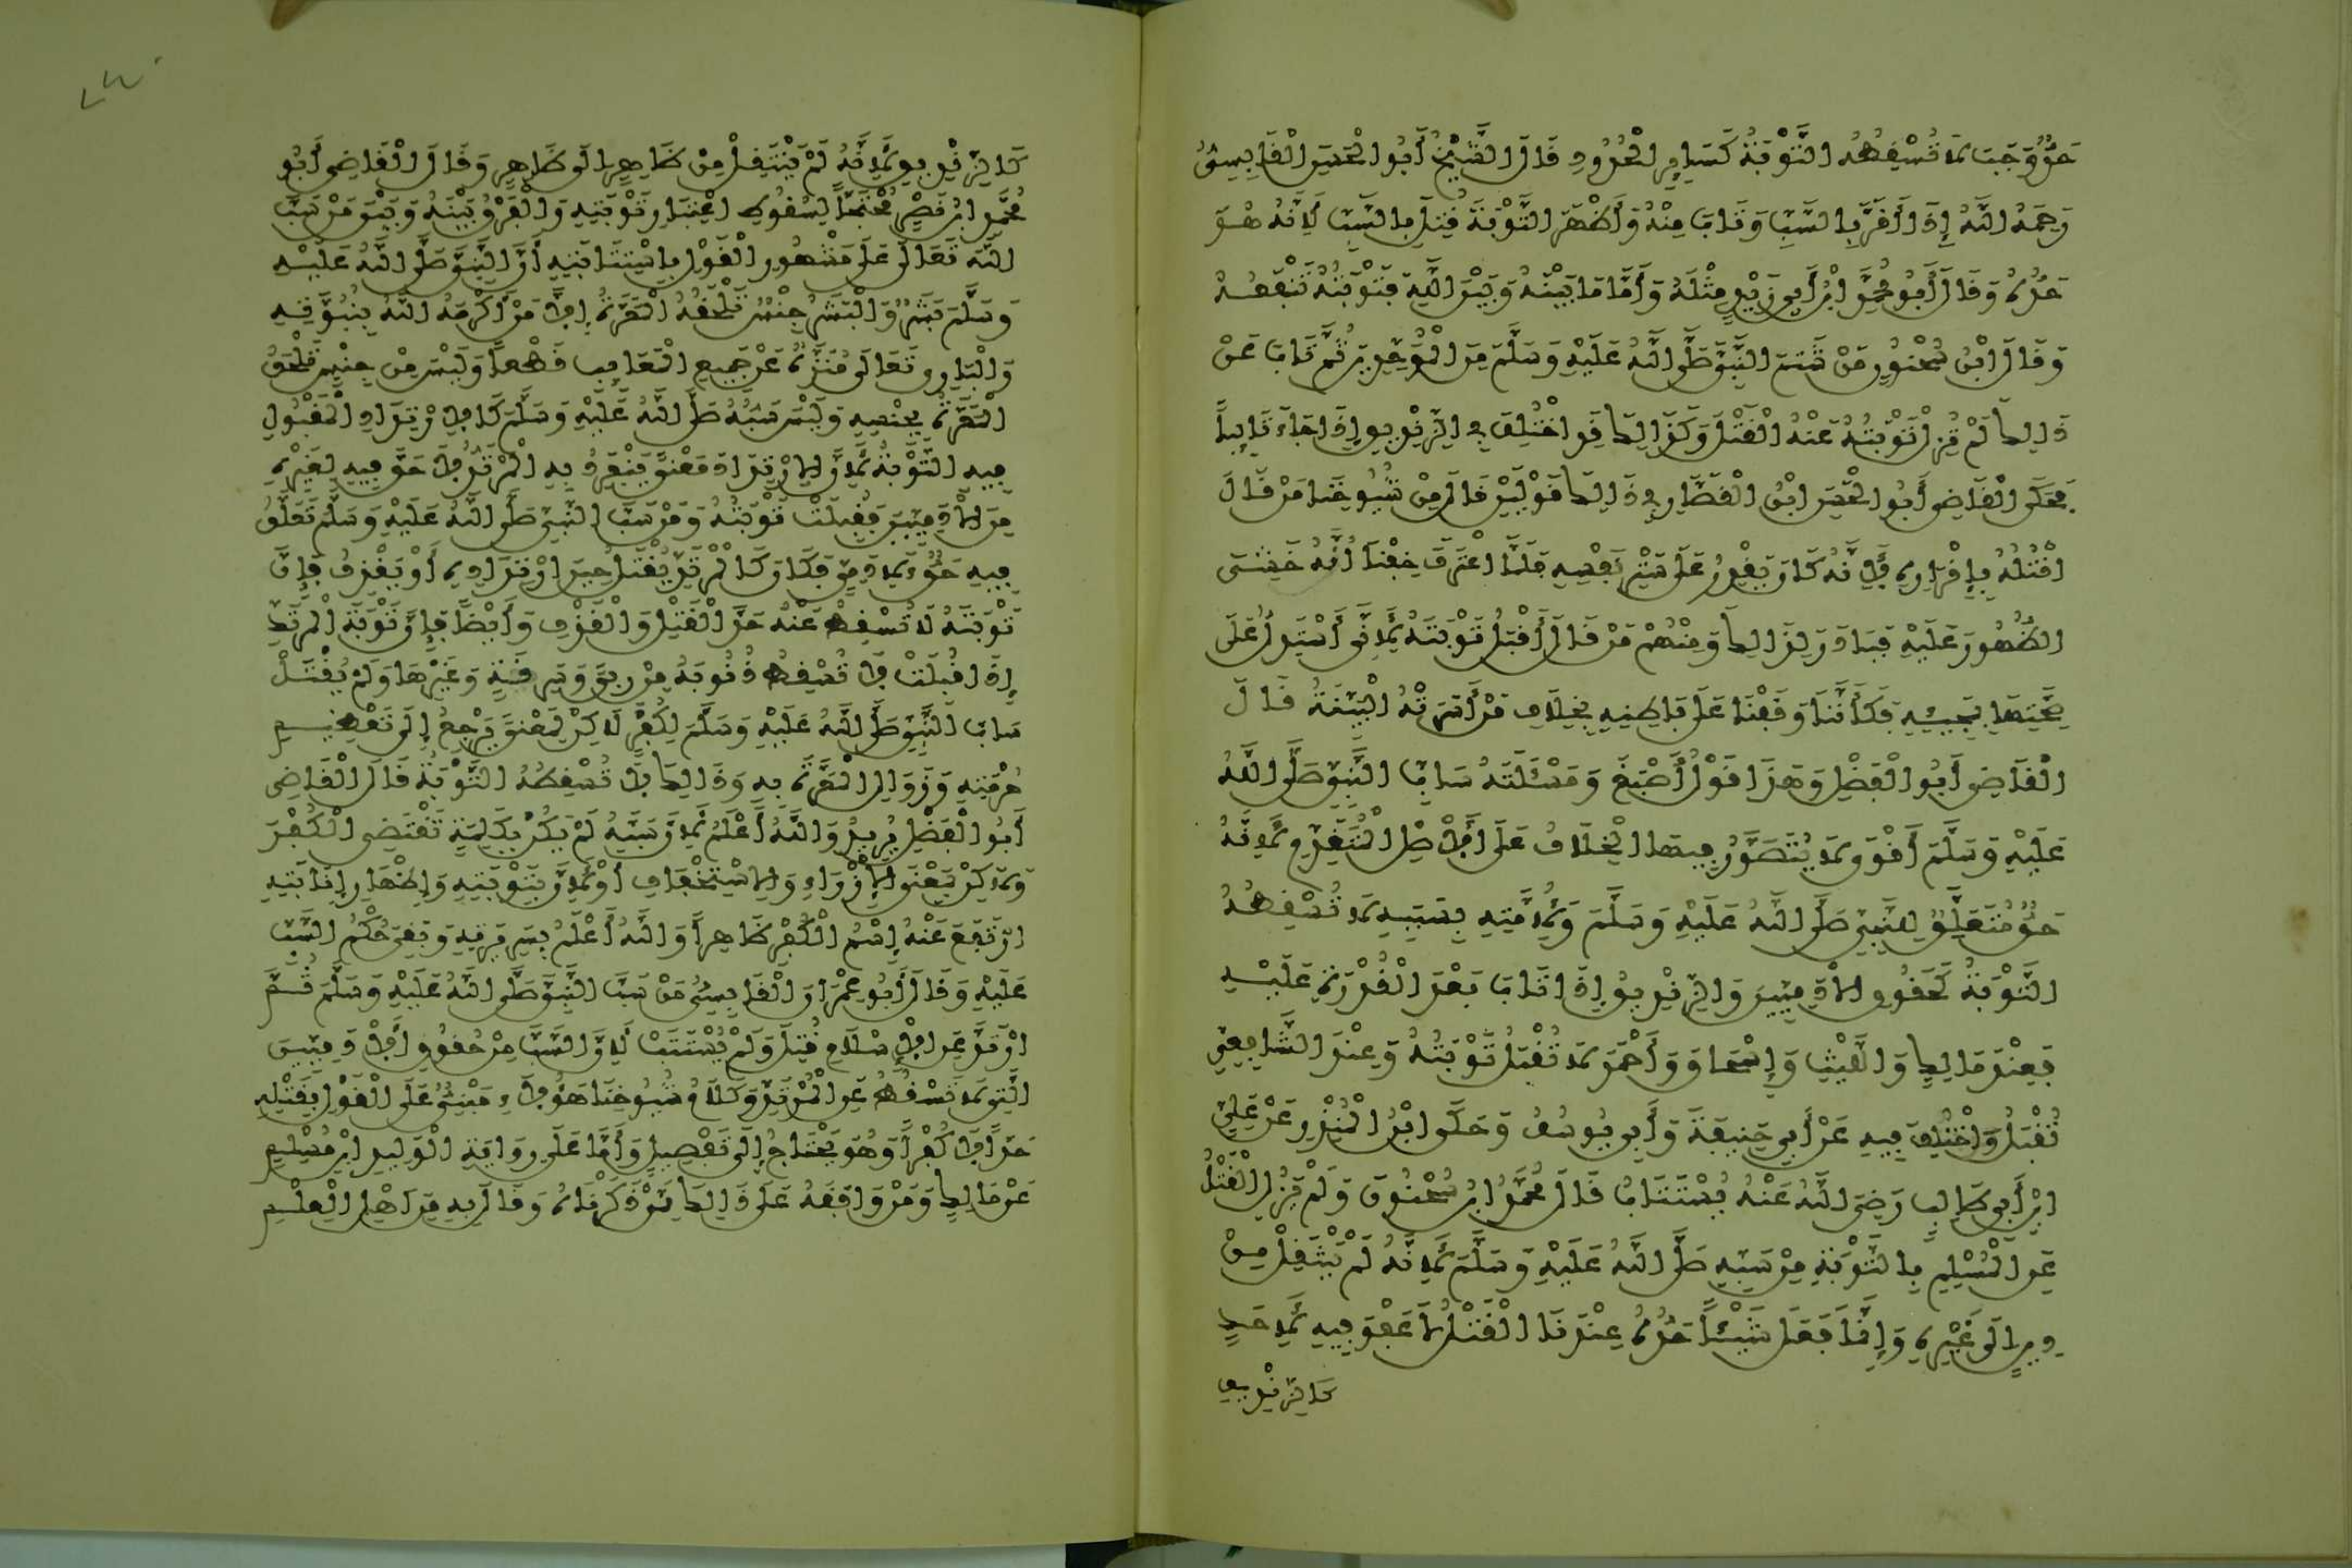 حَدٌّ وَجَبَ لَا تُسْقِطُهُ التَّوْبَةُ كَسَايِرِ الْحُدُودِ قَالَ الشَّيْخُ أَبُو الْحَسَنِ الْقَابِسِيُّ
رَحِمَهُ اللَّهُ إِذَا أَقَرَّ بِالسَّبِّ وَتَابَ مِنْهُ وَأَظْهَرَ التَّوْبَةَ قُتِلَ بِالسَّبِّ لِأَنَّهُ هُوَ
حَدُّهُ وَقَالَ أَبُو مُحَمَّدٍ ابْنُ أَبِي زَيْدٍ مِثْلَهُ وَأَمَّا مَا بَيْنَهُ وَبَيْنَ اللَّهِ فَتَوْبَتُهُ تَنْفَعُهُ
وَقَالَ ابْنُ سُحْنُونٍ مَنْ شَتَمَ النَّبِيَّ صَلَّى اللَّهُ عَلَيْهِ وَسَلَّمَ مِنَ الْمُوَحِّدِينَ ثُمَّ تَابَ عَنْ
ذَالِكَ لَمْ تُزِلْ تَوْبَتُهُ عَنْهُ الْقَتْلَ وَكَذَالِكَ قَدِ اخْتُلِفَ فِي الزِّنْدِيقِ إِذَا جَاءَ تَايِبًا
فَحَكَى الْقَاضِي أَبُو الْحَسَنِ ابْنُ الْقَصَّارِ فِي ذَالِكَ قَوْلَيْنِ قَالَ مِنْ شُيُوخِنَا مَنْ قَالَ
اقْتُلُهُ بِإِقْرَارِهِ لِأَنَّهُ كَانَ يَقْدِرُ عَلَى سَتْرِ نَفْسِهِ فَلَمَّا اعْتَرَفَ خِفْنَا أَنَّهُ خَشِيَ
الظُّهُورَ عَلَيْهِ فَبَادَرَ لِذَالِكَ وَمِنْهُمْ مَنْ قَالَ أَقْبَلُ تَوْبَتَهُ لِأَنِّي أَسْتَدِلُّ عَلَى
صِحَّتِهَا بِمَجِيئِهِ فَكَأَنَّنَا وَقَفْنَا عَلَى بَاطِنِهِ بِخِلَافِ مَنْ أَسَرَتْهُ الْبَيِّنَةُ قَالَ
الْقَاضِي أَبُو الْفَضْلِ وَهَذَا قَوْلُ أَصْبَغَ وَمَسْئَلَةُ سَابِّ النَّبِيِّ صَلَّى اللَّهُ
عَلَيْهِ وَسَلَّمَ أَقْوَى لَا يُتَصَوَّرُ فِيهَا الْخِلَافُ عَلَى الْأَصْلِ الْمُتَقَدِّمِ لِأَنَّهُ
حَقٌّ مُتَعَلِّقٌ لِلنَّبِيِّ صَلَّى اللَّهُ عَلَيْهِ وَسَلَّمَ وَلِأُمَّتِهِ بِسَبَبِهِ لَا تُسْقِطُهُ
التَّوْبَةُ كَحُقُوقِ الْأَدَمِيِّينَ وَالزِّنْدِيقُ إِذَا تَابَ بَعْدَ الْقُدْرَةِ عَلَيْهِ
فَعِنْدَ مَالِكٍ وَاللَّيْثِ وَإِسْحَاقَ وَأَحْمَدَ لَا تُقْبَلُ تَوْبَتُهُ وَعِنْدَ الشَّافِعِيِّ
تُقْبَلُ وَاخْتُلِفَ فِيهِ عَنْ أَبِي حَنِيفَةَ وَأَبِي يُوسُفُ وَحَكَى ابْنُ الْمُنْذِرِ عَنْ عَلِيِّ
ابْنِ أَبِي طَالِبٍ رَضِيَ اللَّهُ عَنْهُ يُسْتَتَابُ قَالَ مُحَمَّدُ ابْنُ سُحْنُونَ وَلَمْ يَزُلِ الْقَتْلُ
عَنِ الْمُسْلِمِ بِالتَّوْبَةِ مِنْ سَبِّهِ صَلَّى اللَّهُ عَلَيْهِ وَسَلَّمَ لِأَنَّهُ لَمْ يَنْتَقِلْ مِنْ
دِينٍ إِلَى غَيْرِهِ وَإِنَّمَا فَعَلَ شَيْئًا حَدُّهُ عِنْدَنَا الْقَتْلُ لَا عَفْوَ فِيهِ لِأَحَدٍ
كَالزِّنْدِيقِ
كَالزِّنْدِيقِ لِأَنَّهُ لَمْ يَنْتَقِلْ مِنْ ظَاهِرٍ إِلَى ظَاهِرٍ وَقَالَ الْقَاضِي أَبُو
مُحَمَّدٍ ابْنُ نَصْرٍ مُحْتَجًّا لِسُقُوطِ اعْتِبَارِ تَوْبَتِهِ وَالْفَرْقُ بَيْنَهُ وَبَيْنَ مَنْ سَبَّ
اللَّهَ تَعَالَى عَلَى مَشْهُورِ الْقَوْلِ بِاسْتِتَابَتِهِ أَنَّ النَّبِيَّ صَلَّى اللَّهُ عَلَيْهِ
وَسَلَّمَ بَشَرٌ وَالْبَشَرُ جِنْسٌ تَلْحَقُهُ الْمَعَرَّةُ إِلَّا مَنْ أَكْرَمَهُ اللَّهُ بِنُبُوَّتِهِ
وَالْبَارِي تَعَالَى مُنَزَّهٌ عَنْ جَمِيعِ الْمَعَايِبِ قَطْعًا وَلَيْسَ مِنْ جِنْسٍ تَلْحَقُ
الْمَعَرَّةُ بِجِنْسِهِ وَلَيْسَ سَبُّهُ صَلَّى اللَّهُ عَلَيْهِ وَسَلَّمَ كَالِارْتِدَادِ الْمَقْبُولِ
فِيهِ التَّوْبَةُ لِأَنَّ الِارْتِدَادَ مَعْنًى يَنْفَرِدُ بِهِ الْمُرْتَدُّ لَا حَقَّ فِيهِ لِغَيْرِهِ
مِنَ الْأَدَمِيِّينَ فَقُبِلَتْ تَوْبَتُهُ وَمَنْ سَبَّ النَّبِيَّ صَلَّى اللَّهُ عَلَيْهِ وَسَلَّمَ تَعَلَّقَ
فِيهِ حَقٌّ لِأَدَمِيٍّ فَكَانَ كَالْمُرْتَدِّ يُقْتَلُ حِينَ ارْتِدَادِهِ أَوْ يَقْذِفُ فَإِنَّ
تَوْبَتَهُ لَا تُسْقِطُ عَنْهُ حَدَّ الْقَتْلِ وَالْقَذْفِ وَأَيْضًا فَإِنَّ تَوْبَةَ الْمُرْتَدِّ
إِذَا قُبِلَتْ لَا تُسْقِطُ ذُنُوبَهُ مِنْ زِنًى وَسَرِقَةٍ وَغَيْرِهَا وَلَمْ يُقْتَلْ
سَابُّ النَّبِيِّ صَلَّى اللَّهُ عَلَيْهِ وَسَلَّمَ لِكُفْرِهِ لَاكِنْ لِمَعْنًى يَرْجِعُ إِلَى تَعْظِيمِ
حُرْمَتِهِ وَزَوَالِ الْمَعَرَّةِ بِهِ وَذَالِكَ لَا تُسْقِطُهُ التَّوْبَةُ قَالَ الْقَاضِي
أَبُو الْفَضْلِ يُرِيدُ وَاللَّهُ أَعْلَمُ لِأَنَّ سَبَّهُ لَمْ يَكُنْ بِكَلِمَةٍ تَقْتَضِي الْكُفْرَ
وَلَاكِنْ بِمَعْنَى الْإِزْرَاءِ وَالِاسْتِخْفَافِ أَوْ لِأَنَّ بِتَوْبَتِهِ وَإِظْهَارِ إِنَابَتِهِ
ارْتَفَعَ عَنْهُ إِسْمُ الْكُفْرِ ظَاهِرًا وَاللَّهُ أَعْلَمُ بِسَرِيرَتِهِ وَبَقِيَ حُكْمُ السَّبِّ
عَلَيْهِ وَقَالَ أَبُو عِمْرَانَ الْقَابِسِيُّ مَنْ سَبَّ النَّبِيَّ صَلَّى اللَّهُ عَلَيْهِ وَسَلَّمَ ثُمَّ
ارْتَدَّ عَنِ الْإِسْلَامِ قُتِلَ وَلَمْ يُسْتَتَبْ لِأَنَّ السَّبَّ مِنْ حُقُوقِ الْأَدَمِيِّينَ
الَّتِي لَا تَسْقُطُ عَنِ الْمُرْتَدِّ وَكَلَامُ شُيُوخِنَا هَؤُلَاءِ مَبْنِيٌّ عَلَى الْقَوْلِ بِقَتْلِهِ
حَدًّا لَا كُفْرًا وَهُوَ يَحْتَاجُ إِلَى تَفْصِيلٍ وَأَمَّا عَلَى رِوَايَةِ الْوَلِيدِ ابْنِ مُسْلِمٍ
عَنْ مَالِكٍ وَمَنْ وَافَقَهُ عَلَى ذَالِكَ مِمَّنْ ذَكَرْنَاهُ وَقَالَ بِهِ مِنْ أَهْلِ الْعِلْمِ